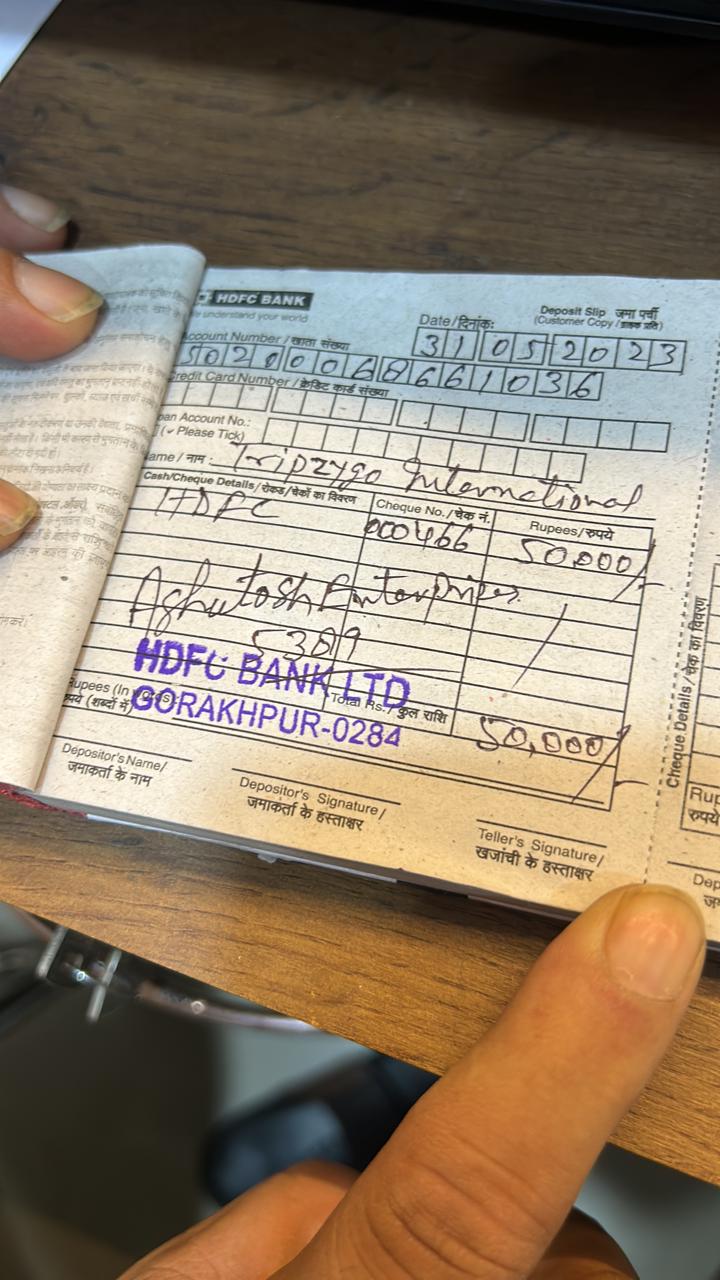 HDFC BANK
We understand your world
Deposit Slip जमा पर्ची
(Customer Copy / ग्राहक प्रति)
Date/दिनांक: 31052023
Account Number / खाता संख्या
50200068661036
Credit Card Number / क्रेडिट कार्ड संख्या
Loan Account No.:
(✓ Please Tick)
Name / नाम : Tripzygo International
Cash/Cheque Details / रोकड/चेकों का विवरण Cheque No. / चेक नं. Rupees/रुपये
HDFC 000466 50,000/-
Ashutosh Enterprises
5389
HDFC BANK LTD
GORAKHPUR-0284
Rupees (In Words)
रुपये (शब्दों में)
Total Rs. / कुल राशि 50,000/-
Depositor's Name/
जमाकर्ता के नाम
Depositor's Signature/
जमाकर्ता के हस्ताक्षर
Teller's Signature/
खजांची के हस्ताक्षर
Cheque Details / चेक का विवरण